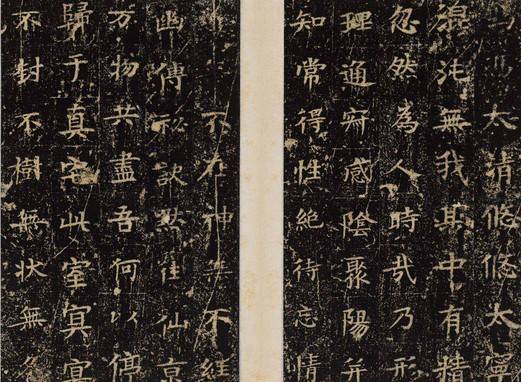 太清悠悠太寧
混沌無我其中有精
忽然為人時哉乃形
理通寂感陰聚陽并
知常得性絕待忘情
不在神無不經
幽傳秘訣默往仙京
万物共盡吾何以停
歸于真宅此室冥冥
不封不樹無状無名